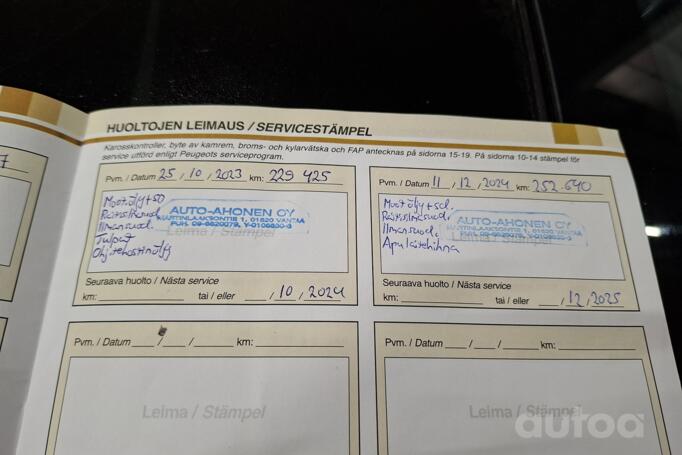 7
HUOLTOJEN LEIMAUS / SERVICESTÄMPEL
Karosskontroller, byte av kamrem, broms- och kylarvätska och FAP antecknas på sidorna 15-19. På sidorna 10-14 stämpel för
service utförd enligt Peugeots serviceprogram.
Pvm. / Datum 25 / 10 / 2023 km: 229 425
Moot.öljy+so
Raitisilmasuod.
Ilmansuod.
Tulpat
Ohjatehostinöljy
AUTO-AHONEN OY
MARTINLAAKSONTIE 1, 01620 VANTAA
PUH. 09-8620079,
Leima / Stämpel
Seuraava huolto / Nästa service
km: tai / eller / 10 / 2024
Pvm. / Datum 11 / 12 / 2024 km: 252 640
Moot.öljy+sd.
Raitisilmasuod.
Ilmansuod.
Apulaitehihna
AUTO-AHONEN OY
MARTINLAAKSONTIE 1, 01620 VANTAA
PUH. 09-8620079,
Leima / Stämpel
Seuraava huolto / Nästa service
km: tai / eller / 12 / 2025
Pvm. / Datum / / km:
Leima / Stämpel
Pvm. / Datum / / km:
Leima / Stämpel
autoa